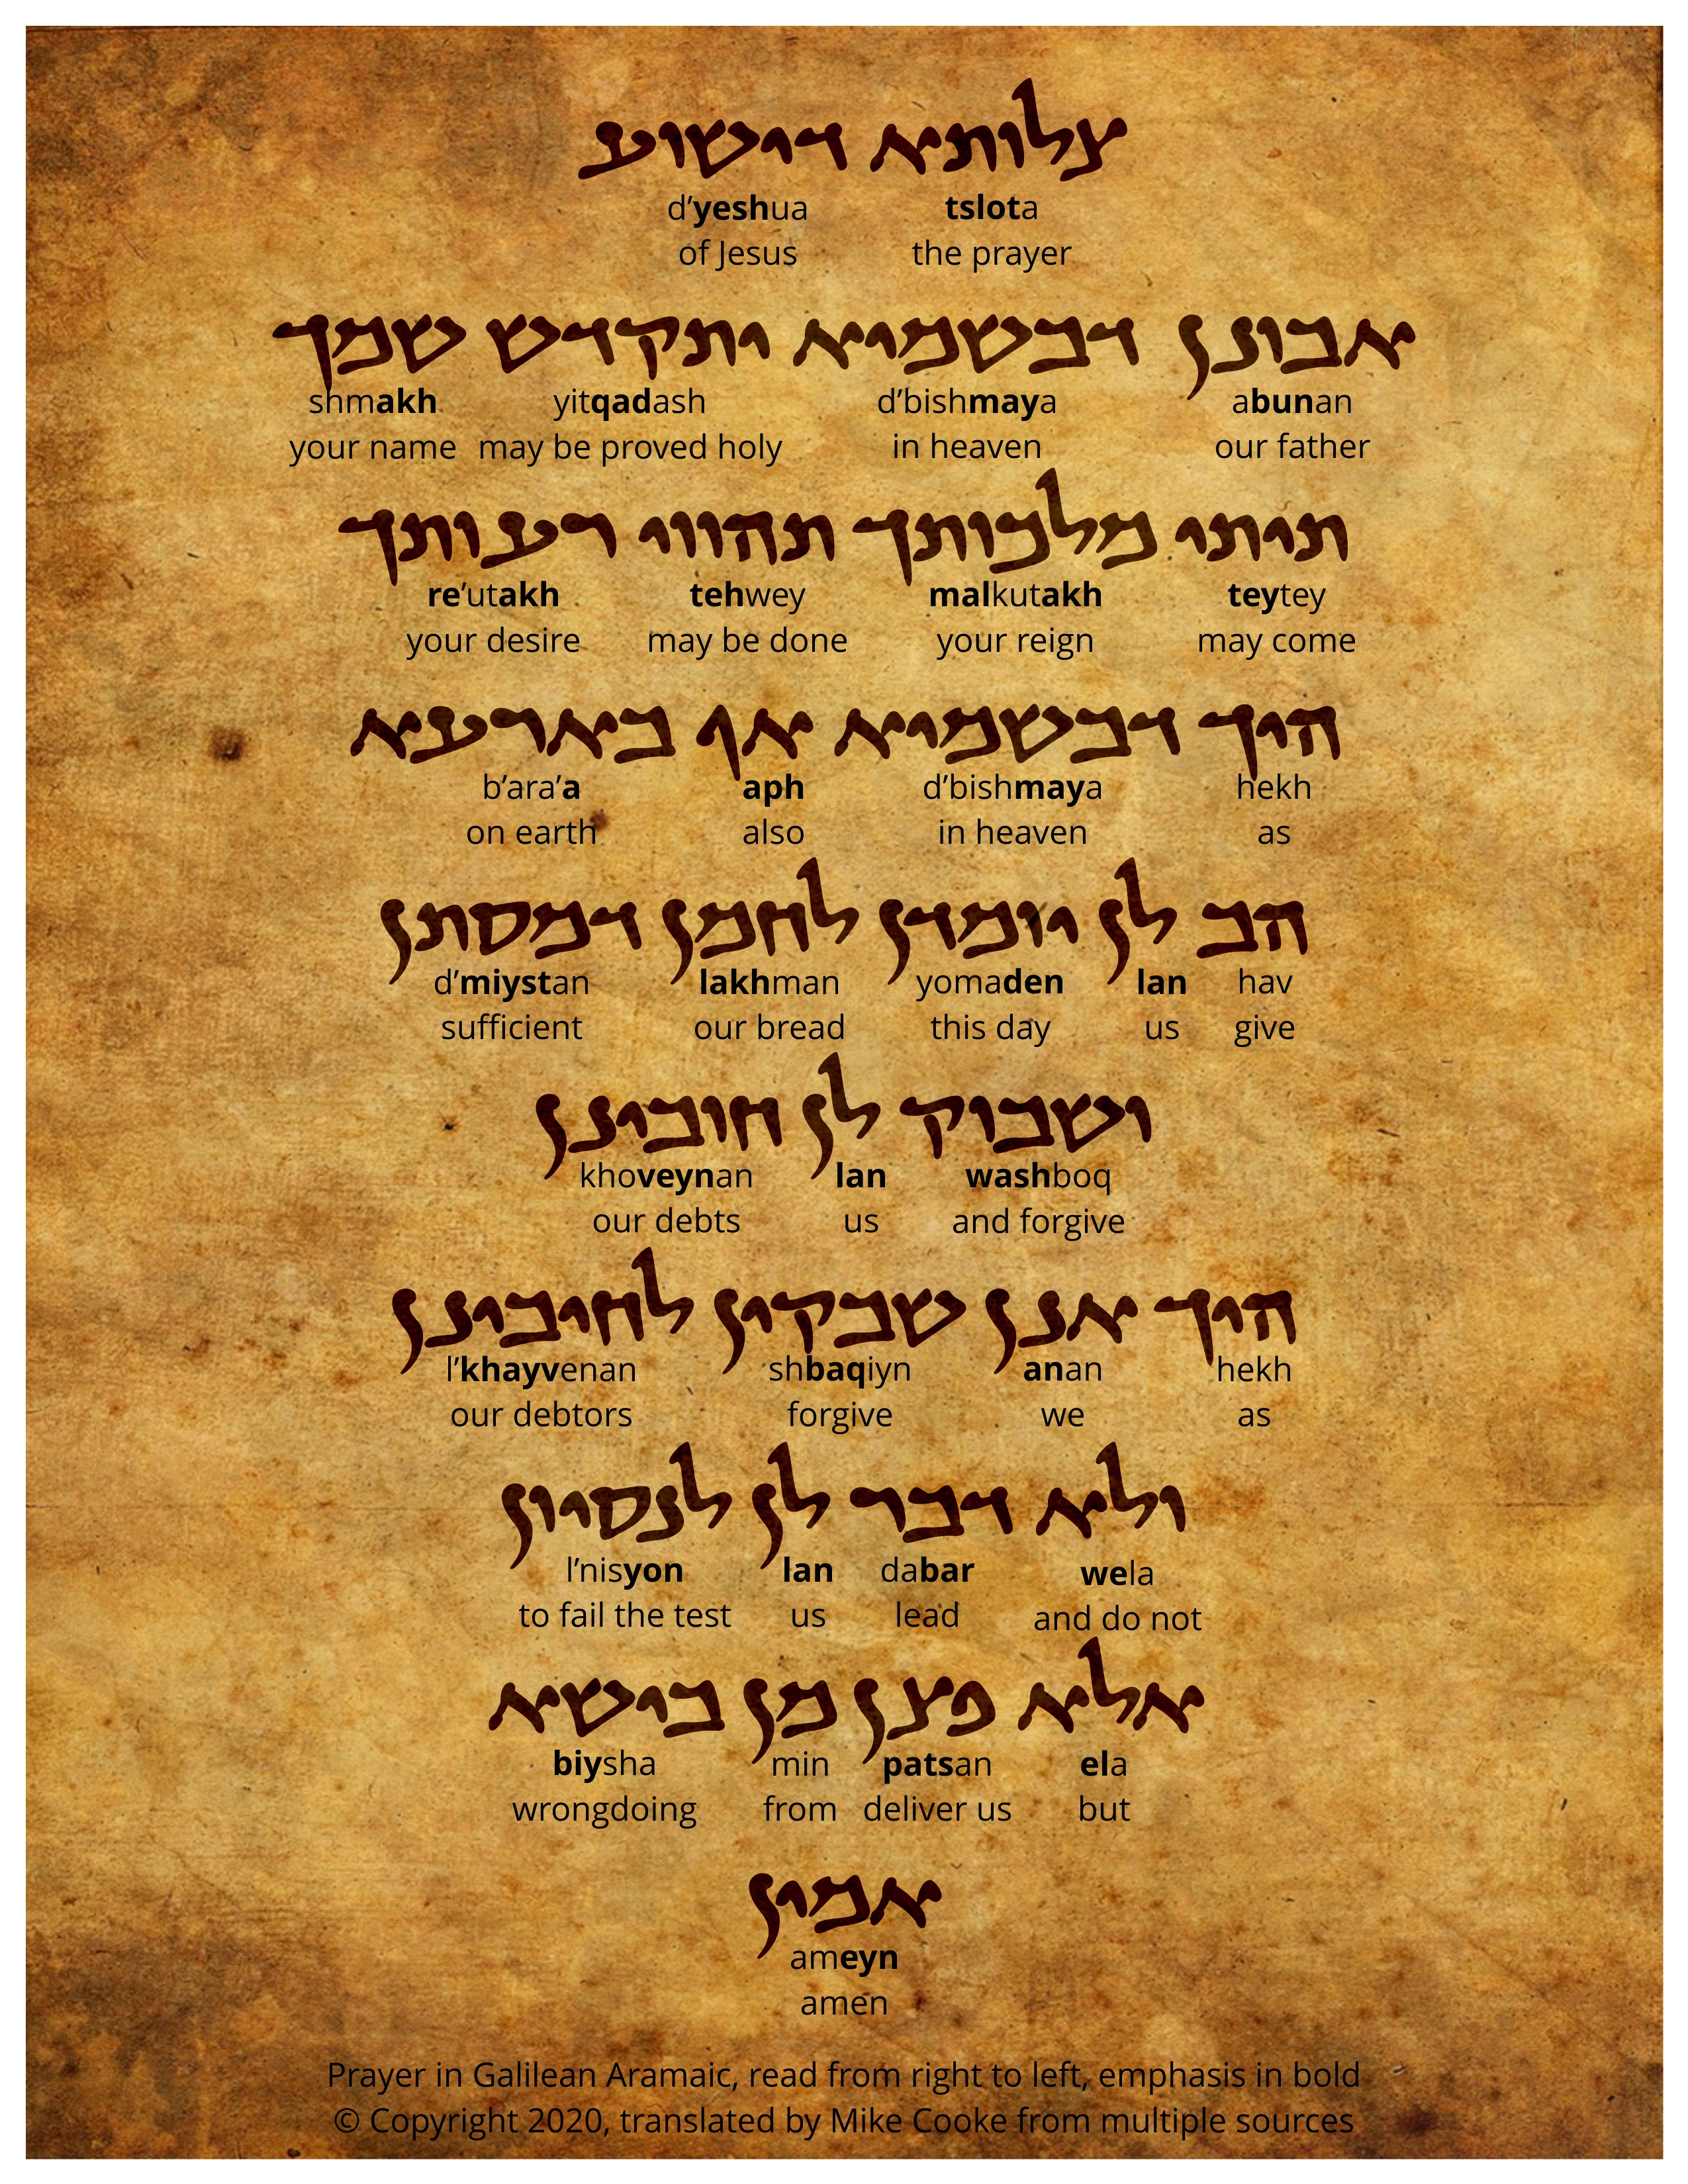 צלותא דישוע
d’yeshua tslota
of Jesus the prayer
אבונן דבשמיא יתקדש שמך
shmakh yitqadash d’bishmaya abunan
your name may be proved holy in heaven our father
תיתי מלכותך תהווי רעותך
re’utakh tehwey malkutakh teytey
your desire may be done your reign may come
היך דבשמיא אף בארעא
b’ara’a aph d’bishmaya hekh
on earth also in heaven as
הב לן יומדן לחמן דמסתן
d’miystan lakhman yomaden lan hav
sufficient our bread this day us give
ושבוק לן חובינן
khoveynan lan washboq
our debts us and forgive
היך אנן שבקין לחיבינן
l’khayvenan shbaqiyn anan hekh
our debtors forgive we as
ולא דבר לן לנסיון
l’nisyon lan dabar wela
to fail the test us lead and do not
אלא פצן מן בישא
biysha min patsan ela
wrongdoing from deliver us but
אמין
ameyn
amen
Prayer in Galilean Aramaic, read from right to left, emphasis in bold
© Copyright 2020, translated by Mike Cooke from multiple sources